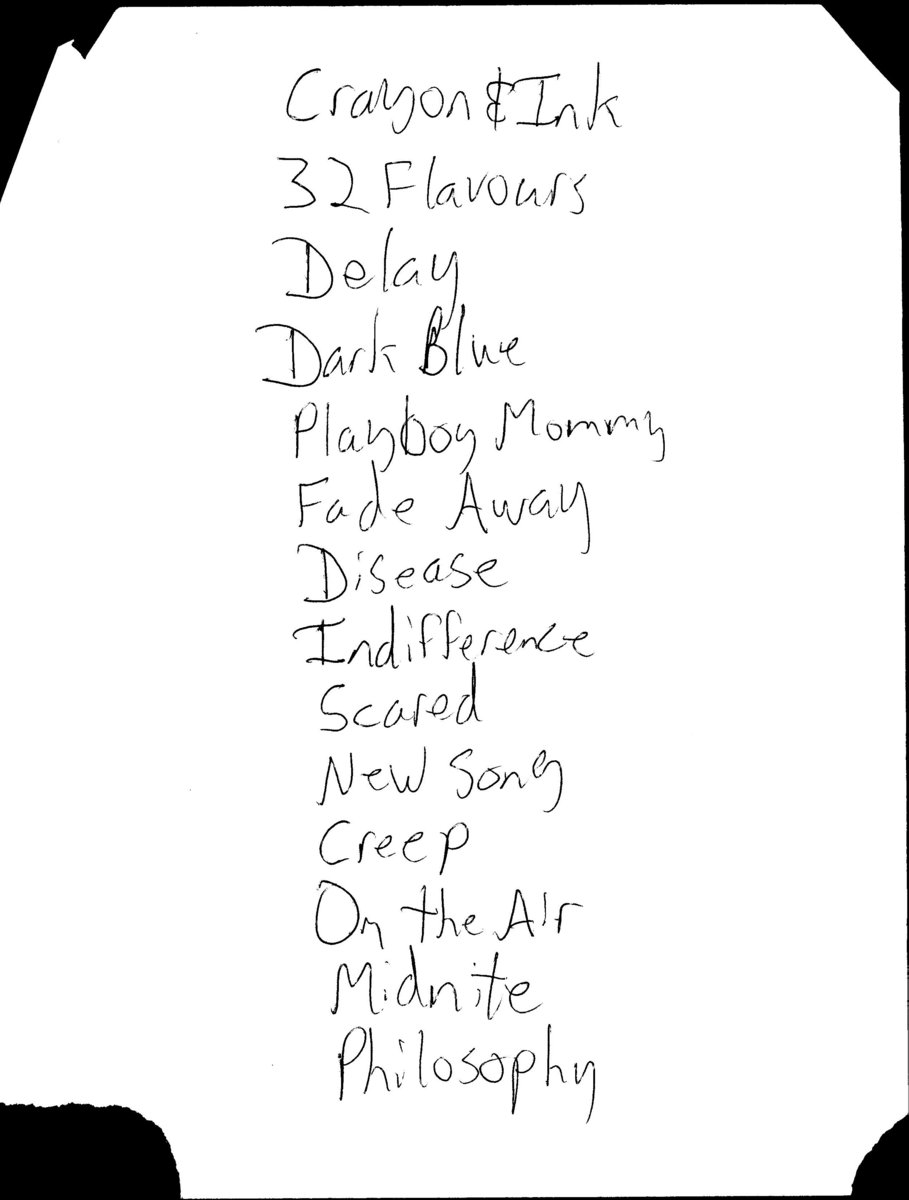 Crayon & Ink
32 Flavours
Delay
Dark Blue
Playboy Mommy
Fade Away
Disease
Indifference
Scared
New Song
Creep
On the Air
Midnite
Philosophy